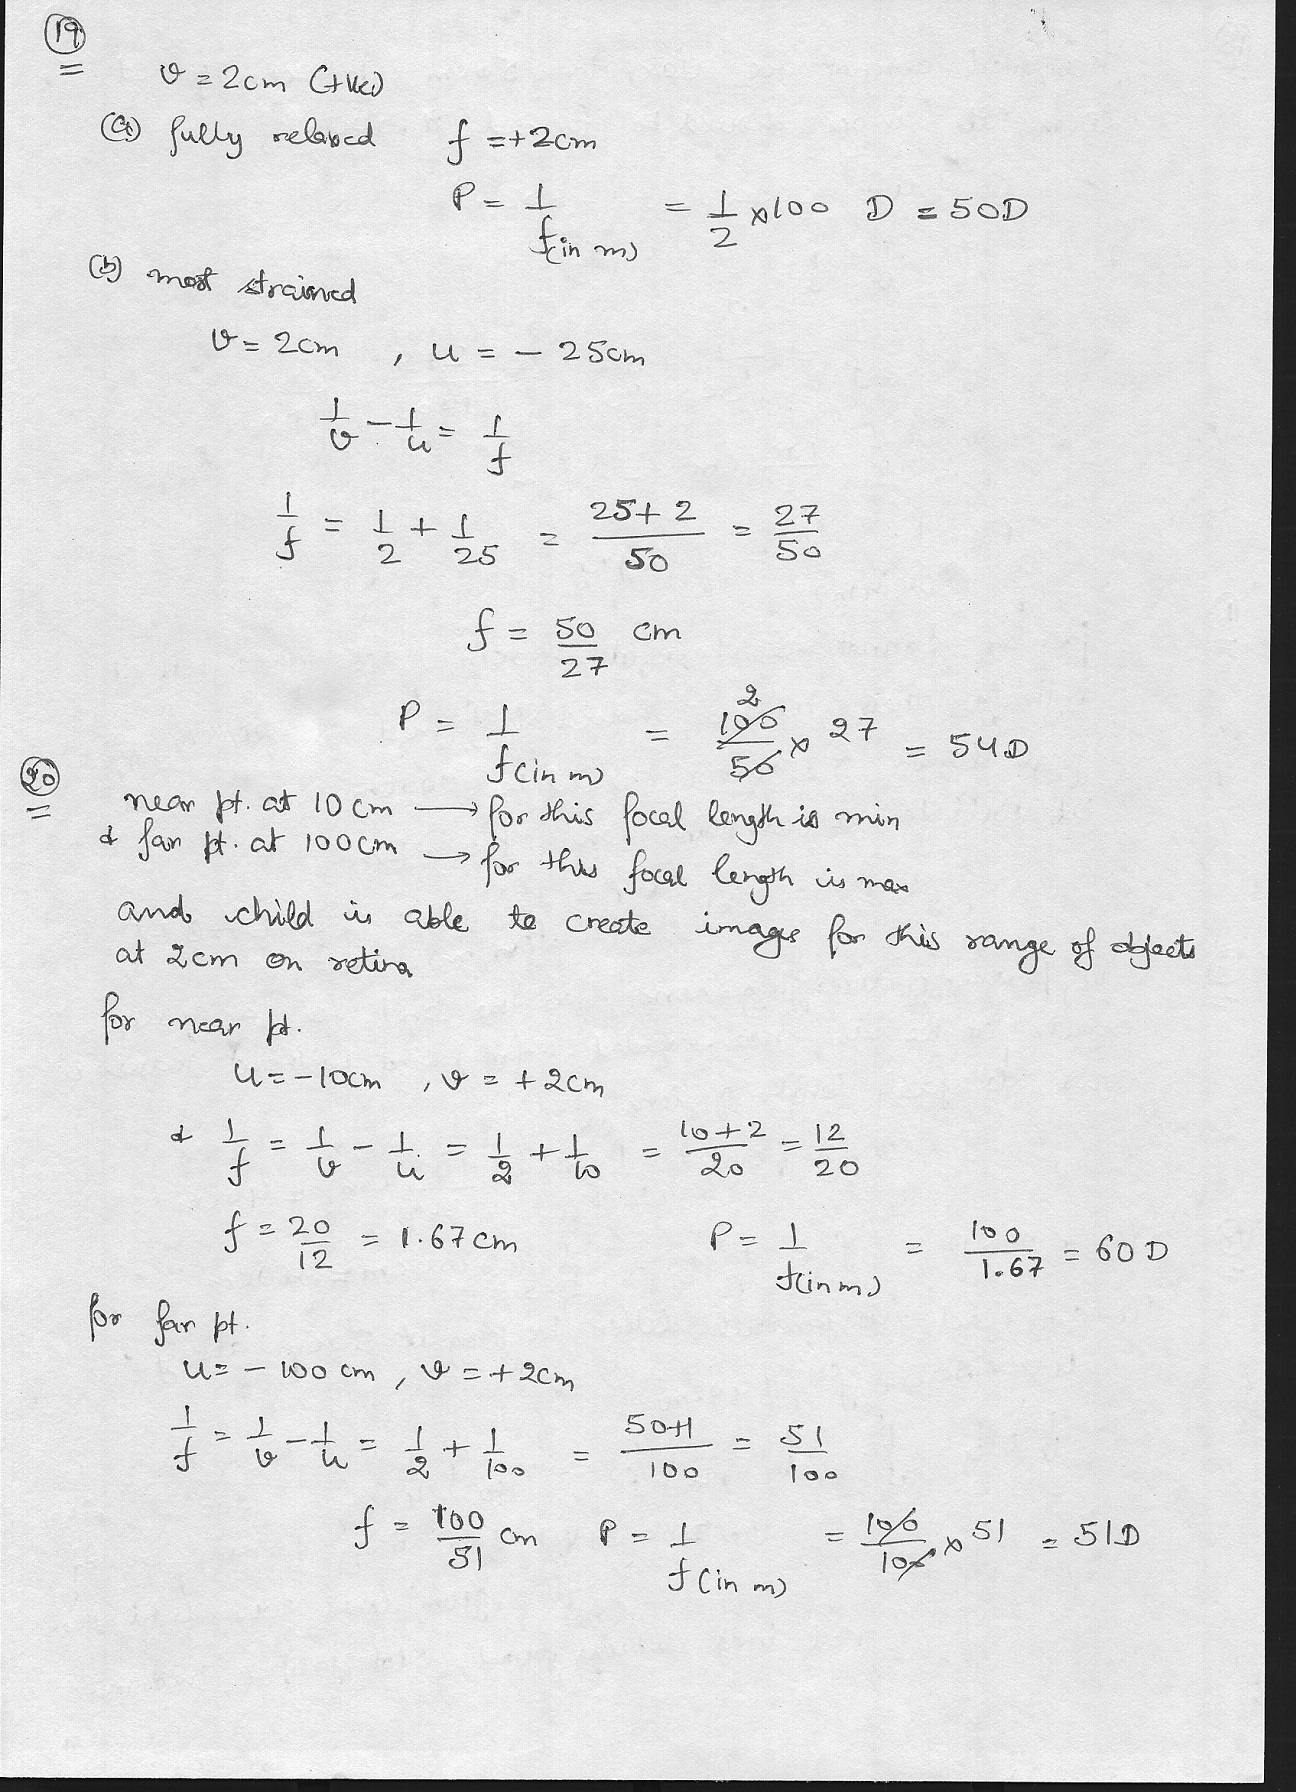 19
v = 2cm (+ve)
(a) fully relaxed f = +2cm
P = 1/f(in m) = 1/2 × 100 D = 50D
(b) most strained
v = 2cm , u = - 25cm
1/v - 1/u = 1/f
1/f = 1/2 + 1/25 = 25+2/50 = 27/50
f = 50/27 cm
P = 1/f(in m) = 100/50 × 27 = 54D
2
20
near pt. at 10cm → for this focal length is min
& far pt. at 100cm → for this focal length is max
and child is able to create images for this range of objects
at 2cm on retina
for near pt.
u = -10cm , v = +2cm
& 1/f = 1/v - 1/u = 1/2 + 1/10 = 10+2/20 = 12/20
f = 20/12 = 1.67cm P = 1/f(in m) = 100/1.67 = 60D
for far pt.
u = - 100 cm , v = +2cm
1/f = 1/v - 1/u = 1/2 + 1/100 = 50+1/100 = 51/100
f = 100/51 cm P = 1/f(in m) = 100/100 × 51 = 51D